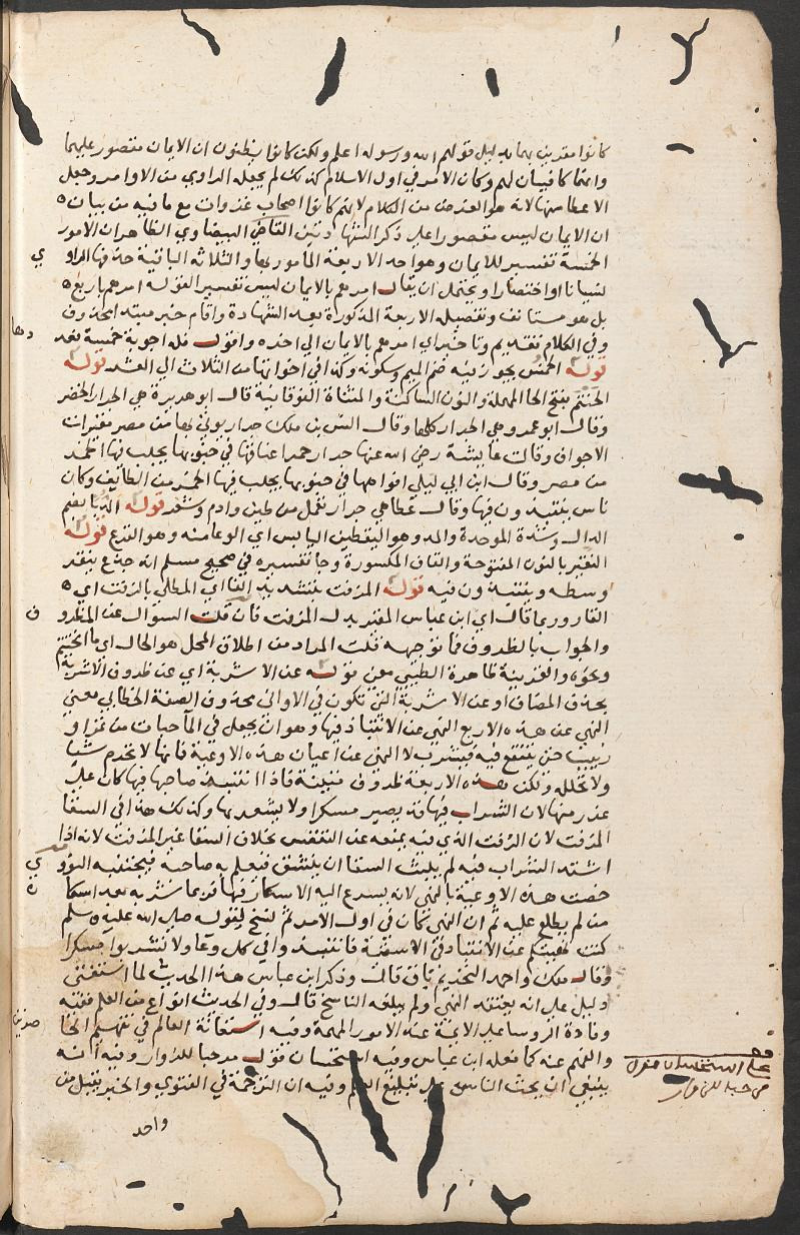 كانوا مقرين بهما بدليل قولهم الله ورسوله اعلم ولكن كانوا يظنون ان الايمان مقصور عليهما
وانهما كافيان لهم وكان الامر في اول الاسلام كذلك لم يجعله الراوي من الاوامر وجعل
الاعطا منها لانه هو الغرض من الكلام لانهم كانوا اصحاب غزوات مع ما فيه من بيان
ان الايمان ليس مقصورا على ذكر الشهادتين القاضي البيضاوي الظاهر ان الامور
الخمسة تفسير للايمان وهو احد الاربعة المامور بها والثلاثة الباقية حذفها الراوي
نسيانا او اختصارا ويحتمل ان يقال امرهم بالايمان ليس تفسيرا لقوله امرهم باربع
بل هو مستانف وتفصيله الاربعة المذكورة بعد الشهادة واقام خبر مبتدا محذوف
وفي الكلام تقديم وتاخير اي امرهم بالايمان الي اخره واقول فله اجوبة خمسة بعدها
قوله الخمس يجوز فيه ضم الميم وسكونه وكذا في اخواتها من الثلاث الي العشر قوله
الحنتم بفتح الحا المهملة والنون الساكنة والمثناة الفوقانية قال ابو هريرة هي الجرار الخضر
وقال ابو عمرو هي الجرار كلها وقال انس بن ملك جرار يوتي بها من مصر مقيرات
الاجواف وقالت عايشة رضي الله عنها جرار حمر اعناقها في جنوبها يجلب فيها الخمر
من مصر وقال ابن ابي ليلي افواهها في جنوبها يجلب فيها الخمر من الطايف وكان
ناس ينتبذون فيها وقال عطا هي جرار تعمل من طين وادم وشعر قوله الدبا بضم
الدال وشدة الموحدة والمد وهو اليقطين اليابس اي الوعا منه وهو القرع قوله
النقير بالنون المفتوحة والقاف المكسورة وجا تفسيره في صحيح مسلم انه جذع ينقر
وسطه وينتبذون فيه قوله المزفت بتشديد الفا اي المطلي بالزفت اي
القار وربما قال اي ابن عباس المقير بدل المزفت فان قلت السوال عن المظروف
والجواب بالظروف فما توجيهه قلت المراد من اطلاق المحل هو الحال اي ما الحنتم
ونحوه والقرينة ظاهرة الطيبي معني قوله عن الاشربة اي عن ظروف الاشربة
بحذف المضاف او عن الاشربة التي تكون في الاواني بحذف الصفة الخطابي معني
النهي عن هذه الاربع النهي عن الانتباذ فيها وهو ان يجعل في الما حبات من تمر او
زبيب حتي ينتقع فيه فيشرب لا النهي عن اعيان هذه الاوعية فانها لا تحرم شيا
ولا تحلله ولكن هذه الاربعة ظروف متينة فاذا انتبذ صاحبها فيها كان علي
غرر منها لان الشراب فيها قد يصير مسكرا ولا يشعر بها وكذلك هذا في السقا
المزفت لان الزفت الذي فيه يمنعه عن التنفس بخلاف السقا غير المزفت لانه اذا
اشتد الشراب فيه لم يلبث السقا ان ينشق فيعلم به صاحبه فيجتنبه النووي
خصت هذه الاوعية بالنهي لانه يسرع اليه الاسكار فيها فربما شربه بعد اسكاره
من لم يطلع عليه ثم ان النهي كان في اول الامر ثم نسخ لقوله صلى الله عليه وسلم
كنت نهيتكم عن الانتباذ في الاسقية فانتبذوا في كل وعا ولا تشربوا مسكرا
وقال ملك واحمد التحريم باق قالا وذكر ابن عباس هذا الحديث لما استفتي
دليل على انه يعتقد النهي ولم يبلغه الناسخ قال وفي الحديث انواع من العلم ففيه
وفادة الروسا علي الايمة عند الامور المهمة وفيه استعانة العالم في تفهيم الحاضرين
والفهم عنه كما فعله ابن عباس وفيه استحسان قول مرحبا للزوار وفيه انه
ينبغي ان يحث الناس على تبليغ العلم وفيه ان الترجمة في الفتوي والخبر يقبل من
واحد